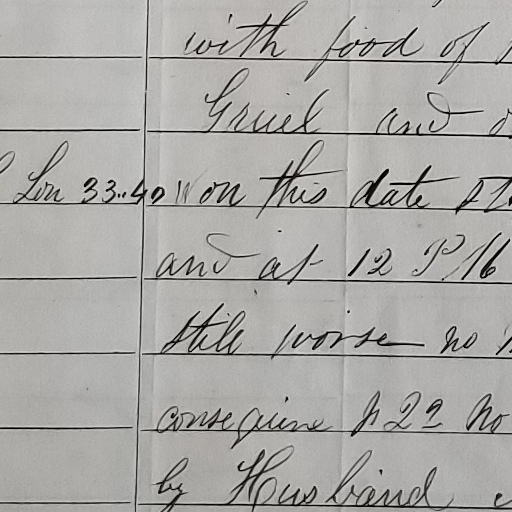 with food of
Gruel and
Lon 33..40 W on this date
and at 12 P M
still worse no
22 No
by Husband